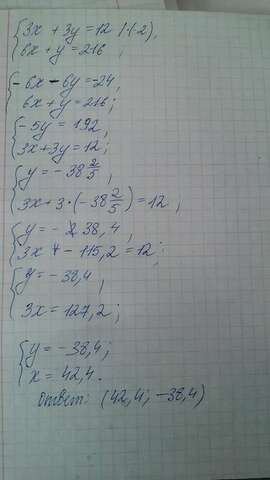 {3x + 3y = 12 |·(-2),
6x + y = 216 ;
{-6x - 6y = -24,
6x + y = 216;
{-5y = 192,
3x + 3y = 12;
{y = -38 2/5,
3x + 3·(-38 2/5) = 12 ;
{y = - 38,4,
3x - 115,2 = 12;
{y = -38,4,
3x = 127,2;
{y = -38,4;
x = 42,4.
Ответ: (42,4; -38,4)